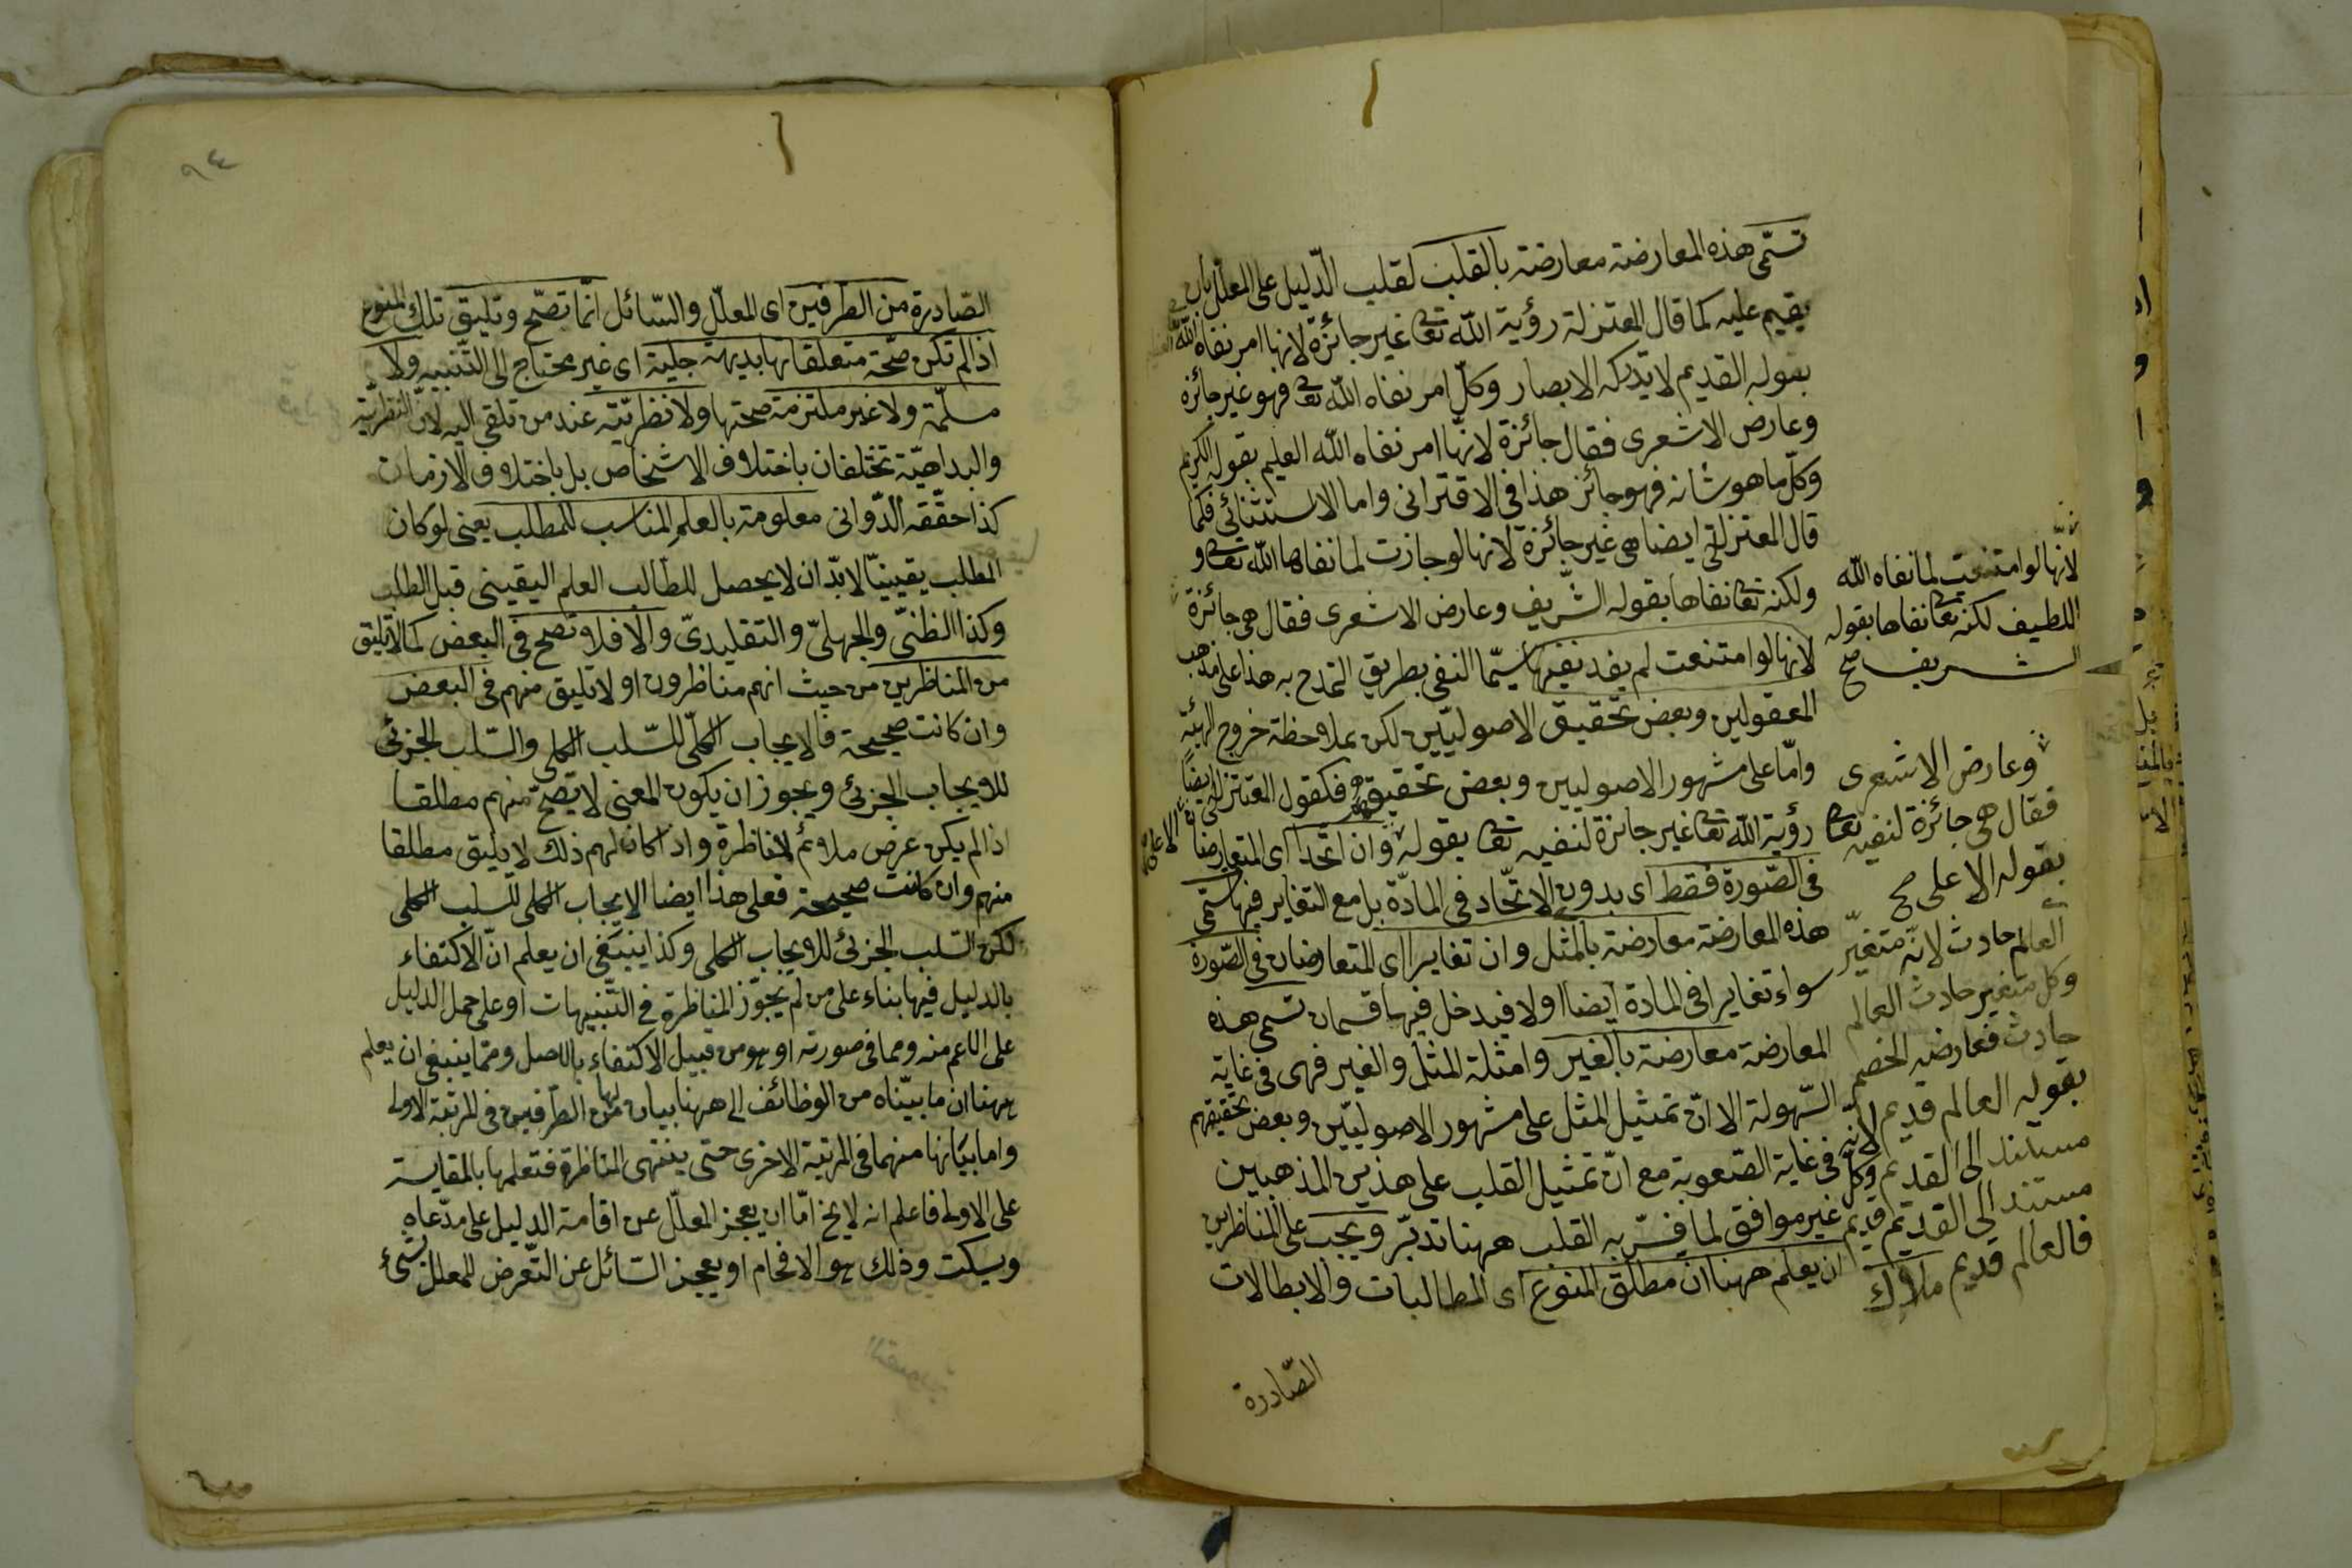 تسمّى هذه المعارضة معارضة بالقلب لقلب الدّليل على المعلّل بان
يقيم عليه كما قال المعتزلة رؤية اللّه تعا غير جائزة لانها امر نفاه اللّه
بقوله القديم لا تدركه الابصار وكلّ امر نفاه اللّه تعا فهو غير جائزة
وعارض الاشعرى فقال جائزة لانّها امر نفاه اللّه العليم بقوله الكريم
وكلّ ما هو شانه فهو جائز هذا فى الاقترانى واما الاستثنائى فكما
قال المعتزلى ايضا هى غير جائزة لانها لو جازت لما نفاها اللّه تعا و
ولكنه تعا نفاها بقوله الشّريف وعارض الاشعرى فقال هى جائزة
لانها لو امتنعت لم يفد نفيها سيّما النفى بطريق التمدح به هذا على مذهب
المعقولين وبعض تحقيق الاصوليّين لكن بملاحظة خروج الهيئة
وامّا على مشهور الاصوليين وبعض تحقيقهم فكقول المعتزلى ايضاً
رؤية اللّه تعا غير جائزة لنفيه تعا بقوله وان اتّحدا اى المتعارضان
فى الصّورة فقط اى بدون الاتّحاد فى المادّة بل مع التغاير فيها تسمى
هذه المعارضة معارضة بالمثل وان تغايرا اى المتعارضان فى الصّورة
سواء تغايرا فى المادة ايضا اولا فيدخل فيها قسمان تسمى هذه
المعارضة معارضة بالغير وامثلة المثل والغير فهى فى غاية
السّهولة الا انّ تمثيل المثل على مشهور الاصوليّين وبعض تحقيقهم
فى غاية الصّعوبة مع انّ تمثيل القلب على هذين المذهبين
غير موافق لما فسّر به القلب ههنا تدبّر ويجب على المناظرين
ان يعلم ههنا ان مطلق المنوع اى المطالبات والابطالات
الصّادرة
لانّها لو امتنعت لما نفاه اللّه
اللطيف لكنه تعا نفاها بقوله
الشريف صح
وعارض الاشعرى
فقال هى جائزة لنفيه تعا
بقوله الاعلى صح
العالم حادث لانّه متغيّر
وكل متغير حادث العالم
حادث فعارضه الخصم
بقوله العالم قديم لانّه
مستند الى القديم وكلّ
مستند الى القديم قديم
فالعالم قديم
٩٤
الصّادرة من الطرفين اى المعلّل والسّائل انّما تصحّ وتليق تلك المنوع
اذا لم تكن صحّة متعلقاتها بديهة جلية اى غير محتاج الى التّنبيه ولا
مسلّمة ولا غير ملتزمة صحتها ولا نظريّة عند من تلقى اليه لانّ النّظريّة
والبداهيّة تختلفان باختلاف الاشخاص بل باختلاف الازمان
كذا حقّقه الدّوانى معلومة بالعلم المناسب للمطلب يعنى لو كان
المطلب يقينيّا لابدّ ان لا يحصل للطّالب العلم اليقينى قبل الطلب
وكذا الظنىّ والجهلىّ والتقليدىّ والا فلا وتصح فى البعض كما لا تليق
من المناظرين من حيث انهم مناظرون او لا تليق منهم فى البعض
وان كانت صحيحة فالايجاب الكلّى للسّلب الكلى والسّلب الجزئى
للايجاب الجزئى ويجوز ان يكون المعنى لا تصحّ منهم مطلقا
اذا لم يكن غرض ملائم للمناظرة واذا كان لهم ذلك لا يليق مطلقا
منهم وان كانت صحيحة فعلى هذا ايضا الايجاب الكلى للسلب الكلى
لكن السّلب الجزئى للايجاب الكلى وكذا ينبغى ان يعلم انّ الاكتفاء
بالدليل فيها بناء على من لم يجوّز المناظرة فى التّنبيهات او على حمل الدليل
على الاعم منه ومما فى صورته او هو من قبيل الاكتفاء بالاصل ومّما ينبغى ان يعلم
ههنا ان ما بيّناه من الوظائف الى ههنا بيان لها من الطّرفين فى المرتبة الاولى
واما بيانها منهما فى المرتبة الاخرى حتى ينتهى المناظرة فتعلمها بالمقايسة
على الاولى فاعلم انه لا يخ امّا ان يعجز المعلّل عن اقامة الدليل على مدّعاه
ويسكت وذلك هو الافحام او يعجز السّائل عن التّعرض للمعلل بشئ